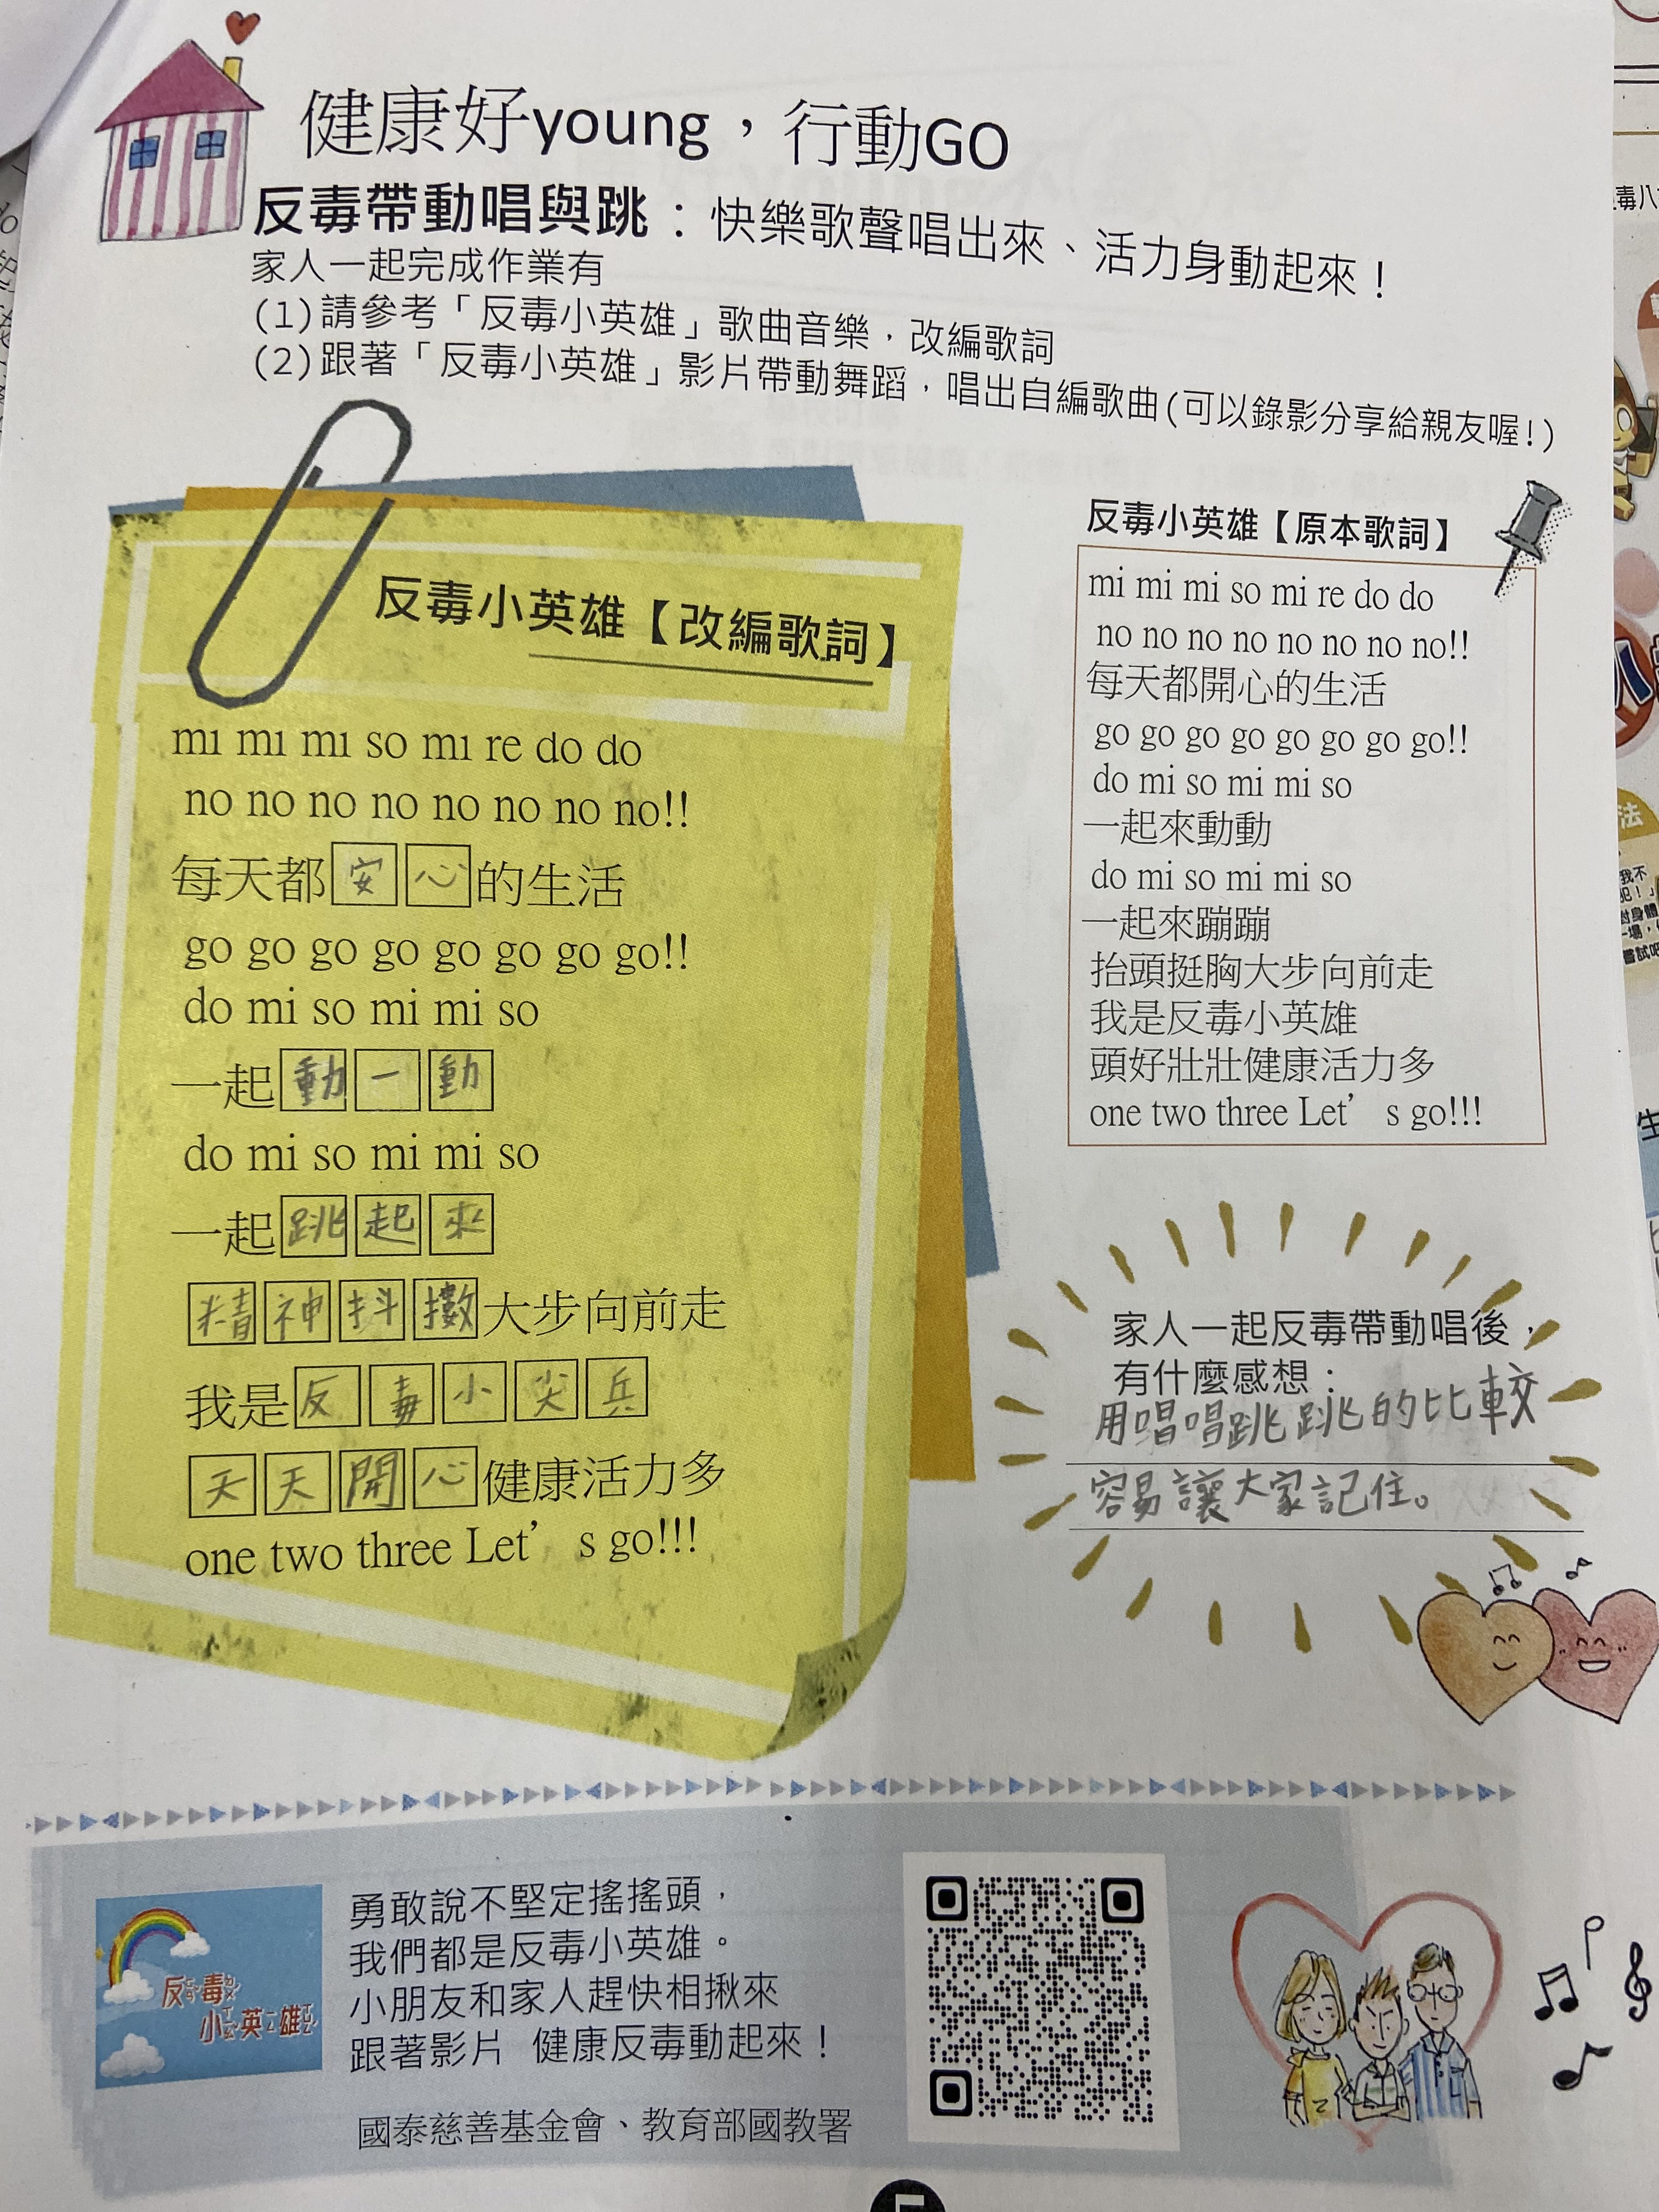 健康好young，行動GO
反毒帶動唱與跳：快樂歌聲唱出來、活力身動起來！
家人一起完成作業有
(1)請參考「反毒小英雄」歌曲音樂，改編歌詞
(2)跟著「反毒小英雄」影片帶動舞蹈，唱出自編歌曲(可以錄影分享給親友喔!)
反毒小英雄【改編歌詞】
mi mi mi so mi re do do
no no no no no no no no!!
每天都安心的生活
go go go go go go go go!!
do mi so mi mi so
一起動一動
do mi so mi mi so
一起跳起來
精神抖擻大步向前走
我是反毒小尖兵
天天開心健康活力多
one two three Let’s go!!!
反毒小英雄【原本歌詞】
mi mi mi so mi re do do
no no no no no no no no!!
每天都開心的生活
go go go go go go go go!!
do mi so mi mi so
一起來動動
do mi so mi mi so
一起來蹦蹦
抬頭挺胸大步向前走
我是反毒小英雄
頭好壯壯健康活力多
one two three Let’s go!!!
家人一起反毒帶動唱後，
有什麼感想：
用唱唱跳跳的比較
容易讓大家記住。
反毒
小英雄
勇敢說不堅定搖搖頭，
我們都是反毒小英雄。
小朋友和家人趕快相揪來
跟著影片 健康反毒動起來！
國泰慈善基金會、教育部國教署